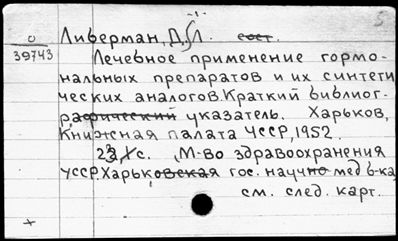 О
39743
Либерман, Д. Л. сост.
Лечебное применение гормо-
нальных препаратов и их синтети
ческих аналогов. Краткий библиог-
рафический указатель. Харьков,
Книжная палата УССР, 1952.
с. М-во здравоохранения
УССР. Харьковская гос. научно мед б-ка
см. след. карт.
+